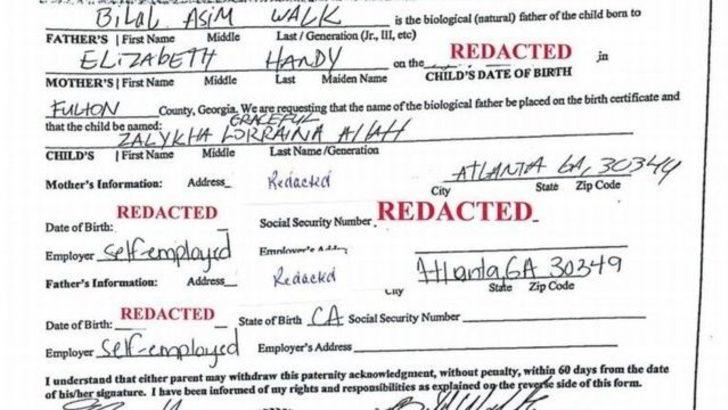 BILAL ASIM WALK is the biological (natural) father of the child born to
FATHER'S | First Name Middle Last / Generation (Jr., III, etc)
ELIZABETH HANDY on the REDACTED in
MOTHER'S | First Name Middle Last Maiden Name CHILD'S DATE OF BIRTH
FULTON County, Georgia. We are requesting that the name of the biological father be placed on the birth certificate and
GRACEFUL
that the child be named: ZALYKHA LORRAINA ALLAH
CHILD'S | First Name Middle Last Name /Generation
ATLANTA GA, 30349
Mother's Information: Address Redacted City State Zip Code
REDACTED REDACTED
Date of Birth: Social Security Number
Employer self-employed Employer's
Atlanta, GA 30349
Father's Information: Address Redacted City State Zip Code
REDACTED
Date of Birth: State of Birth CA Social Security Number
Employer self-employed Employer's Address
I understand that either parent may withdraw this paternity acknowledgment, without penalty, within 60 days from the date
of his/her signature. I have been informed of my rights and responsibilities as explained on the reverse side of this form.